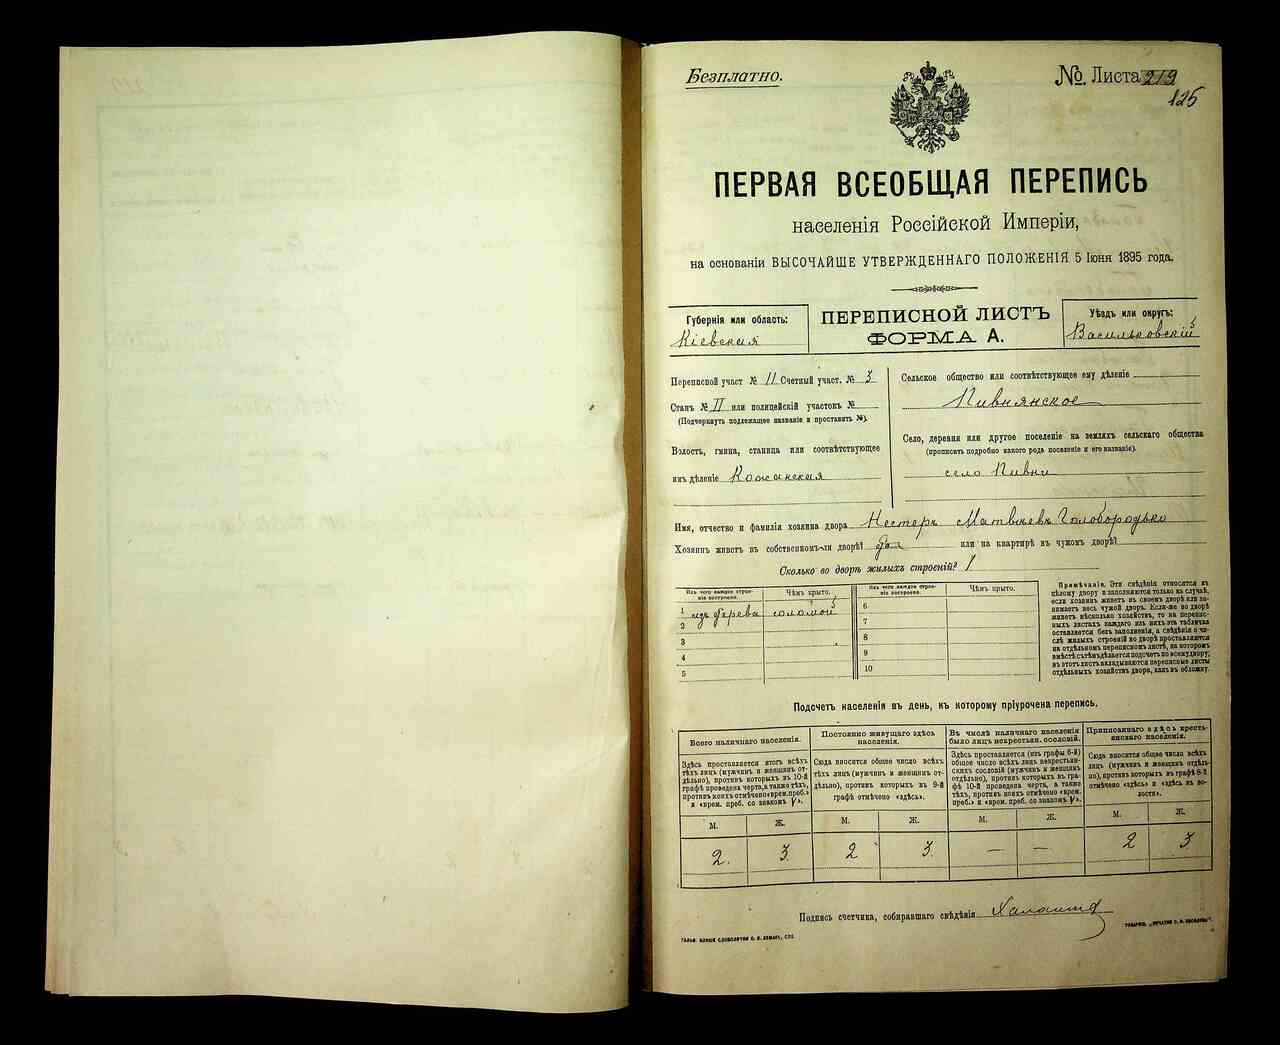 Безплатно.
№ Листа 219
125
ПЕРВАЯ ВСЕОБЩАЯ ПЕРЕПИСЬ
населенія Россійской Имперіи,
на основаніи ВЫСОЧАЙШЕ УТВЕРЖДЕННАГО ПОЛОЖЕНІЯ 5 Іюня 1895 года.
Губернія или область:
Кіевская
ПЕРЕПИСНОЙ ЛИСТЪ
ФОРМА А.
Уѣздъ или округъ:
Васильковскій
Переписной участ. № II Счетный участ. № 3
Станъ № II или полицейскій участокъ №
(Подчеркнуть подлежащее названіе и проставить №).
Волость, гмина, станица или соотвѣтствующее
имъ дѣленіе Кожанская
Сельское общество или соотвѣтствующее ему дѣленіе
Пивнянское
Село, деревня или другое поселеніе на земляхъ сельскаго общества
(прописать подробно какого рода поселеніе и его названіе).
село Пивни
Имя, отчество и фамилія хозяина двора Нестеръ Матвѣевъ Голобородько
Хозяинъ живетъ въ собственномъ-ли дворѣ? да или на квартирѣ въ чужомъ дворѣ?
Сколько во дворѣ жилыхъ строеній? 1
Изъ чего каждое строеніе построено.
Чѣмъ крыто.
Изъ чего каждое строеніе построено.
Чѣмъ крыто.
1 изъ дерева соломой
2
3
4
5
6
7
8
9
10
Примѣчаніе. Эти свѣдѣнія относятся къ
цѣлому двору и заполняются только въ случаѣ,
если хозяинъ живетъ въ своемъ дворѣ или занимаетъ
весь чужой дворъ. Если-же во дворѣ
живетъ нѣсколько хозяйствъ, то на переписныхъ
листахъ каждаго изъ нихъ эта табличка
оставляется безъ заполненія, а свѣдѣнія о числѣ
жилыхъ строеній во дворѣ проставляются
на отдѣльномъ переписномъ листѣ, на которомъ
вмѣстѣ съ тѣмъ дѣлается подсчетъ по всему двору;
въ этотъ листъ вкладываются переписные листы
отдѣльныхъ хозяйствъ двора, какъ въ обложку.
Подсчетъ населенія въ день, къ которому пріурочена перепись.
Всего наличнаго населенія.
Здѣсь проставляется итогъ всѣхъ
тѣхъ лицъ (мужчинъ и женщинъ отдѣльно),
противъ которыхъ въ 10-й
графѣ проведена черта, а также тѣхъ,
противъ коихъ отмѣчено «врем. преб.»
и «врем. преб. со знакомъ V».
Постоянно живущаго здѣсь
населенія.
Сюда вносится общее число всѣхъ
тѣхъ лицъ (мужчинъ и женщинъ отдѣльно),
противъ которыхъ въ 9-й
графѣ отмѣчено «здѣсь».
Въ числѣ наличнаго населенія
было лицъ некрестьян. сословій.
Здѣсь проставляется (изъ графы 6-й)
общее число всѣхъ лицъ некрестьянскихъ
сословій (мужчинъ и женщинъ
отдѣльно), противъ которыхъ въ графѣ
10-й проведена черта, а также
тѣхъ, противъ коихъ отмѣчено «врем.
преб.» и «врем. преб. со знакомъ V».
Приписаннаго здѣсь крестьянскаго
населенія.
Сюда вносится общее число всѣхъ
лицъ (мужчинъ и женщинъ отдѣльно),
противъ которыхъ въ графѣ 8-й
отмѣчено «здѣсь» и «здѣсь въ волости».
М. Ж. М. Ж. М. Ж. М. Ж.
2. 3. 2 3. — — 2 3
Подпись счетчика, собиравшаго свѣдѣнія